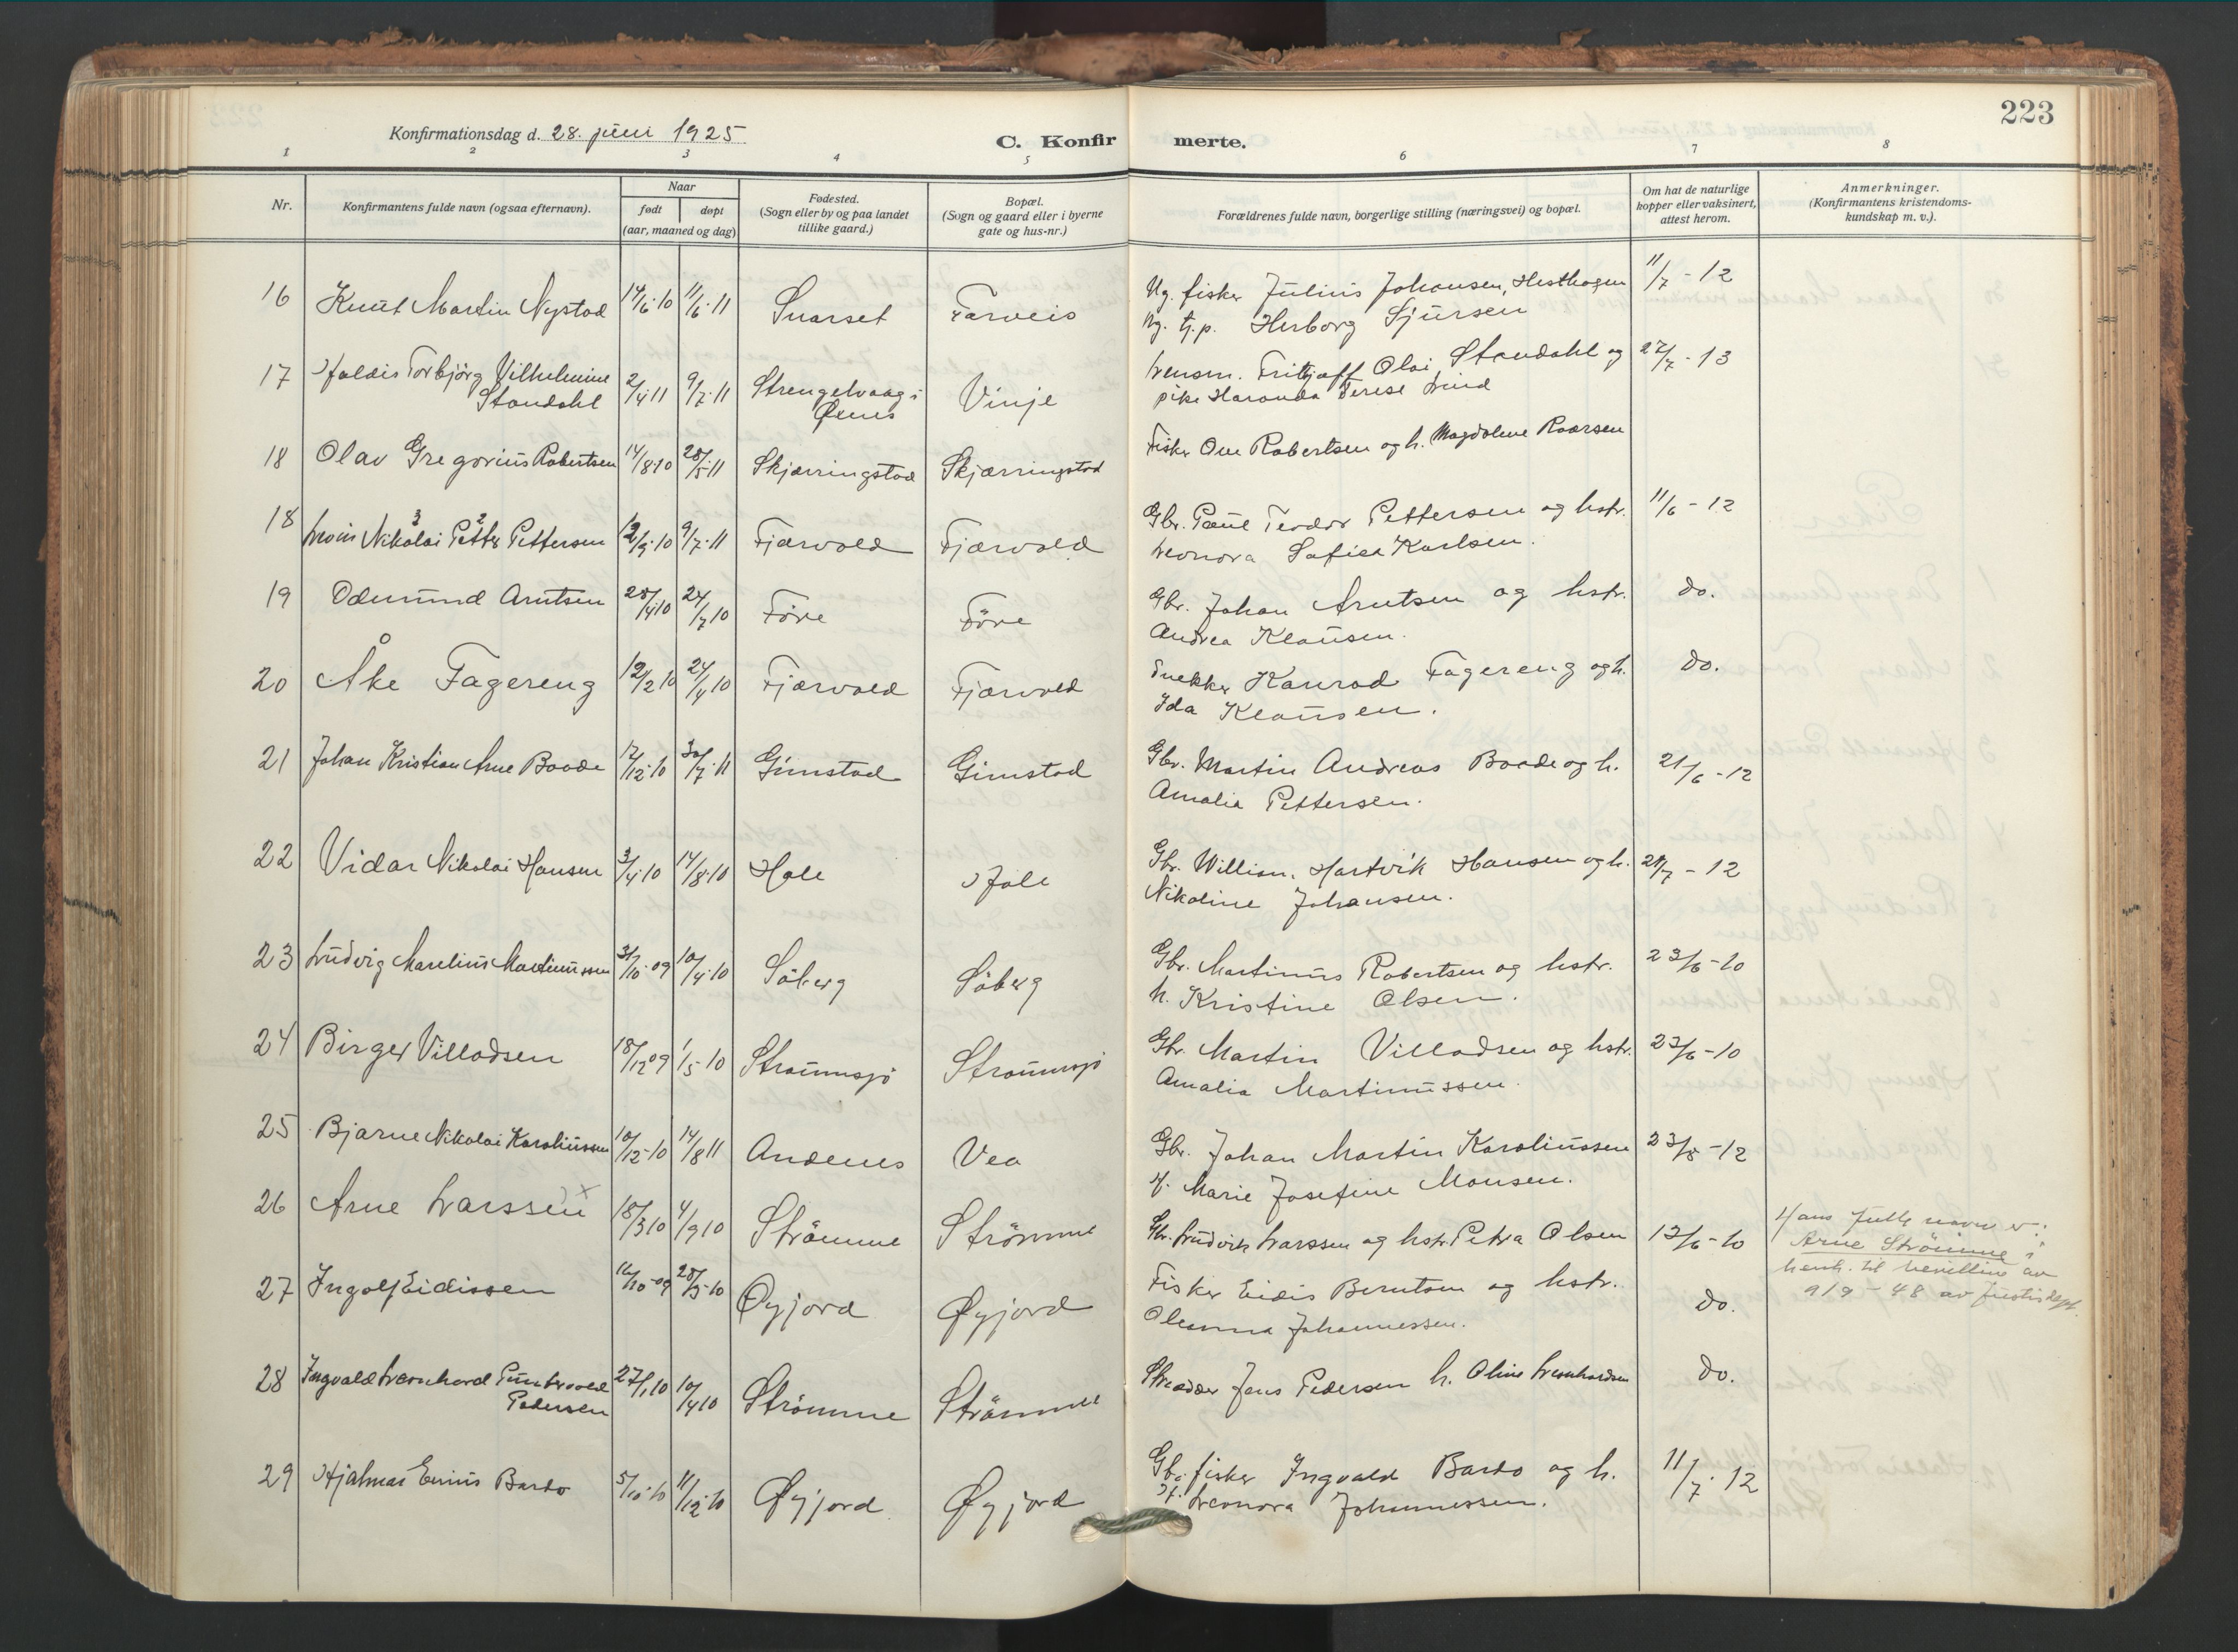 223
Konfirmationsdag d. 28. juni 1925
C. Konfirmerte.
1 2 3 4 5 6 7 8
Nr.
Konfirmantens fulde navn (ogsaa efternavn).
Naar
født døpt
(aar, maaned og dag)
Fødested.
(Sogn eller by og paa landet
tillike gaard.)
Bopæl.
(Sogn og gaard eller i byerne
gate og hus-nr.)
Forældrenes fulde navn, borgerlige stilling (næringsvei) og bopæl.
Om hat de naturlige
kopper eller vaksinert,
attest herom.
Anmerkninger.
(Konfirmantens kristendoms-
kundskap m. v.).
16 Knut Martin Nystad 14/6-10 11/6-11 Snarset Farveis Ug. fisker Julius Johansen, Hesthagen 11/7-12
Ug. tj.p. Herborg Sjursen
17 Haldis Torbjörg Vilhelmine 2/4 11 9/7-11 Strengelvaag i Vinje Lensm. Fritjoff Olai Standahl og 27/7-13
Standahl Øxnes pike Haranda Terese Lind
18 Olav Gregorius Robertsen 14/8-10 28/5-11 Skjærringstad Skjærringstad Fisker Ove Robertsen og h. Magdalene Roarsen
18 Louis Nikolai 3 Petter 2 Pettersen 12/9-10 9/7-11 Fjærvold Fjærvold Gbr. Paul Teodor Pettersen og hstr. 11/6-12
Leonora Sofie Karlsen.
19 Odmund Arntsen 28/4 10 24/7 10 Före Före Gbr. Johan Arntsen og hstr. do.
Andrea Klausen.
20 Åke Fagereng 12/2 10 24/4 10 Fjærvold Fjærvold Snekker Konrad Fagereng og h. do.
Ida Klausen.
21 Johan Kristian Arne Baade 17/12-10 30/7-11 Gimstad Gimstad Gbr. Martin Andreas Baade og h. 21/6-12
Amalie Pettersen.
22 Vidar Nikolai Hansen 3/4-10 14/8-10 Hole Hole Gbr. William Hartvik Hansen og h. 21/7-12
Nikoline Johansen.
23 Ludvig Marelius Martinussen 31/10-09 10/4-10 Söberg Söberg Gbr. Martinus Robertsen og hstr. 23/6-10
h. Kristine Olsen.
24 Birger Villadsen 18/12 09 1/5-10 Straumsjö Straumsjö Gbr. Martin Villadsen og hstr. 23/6-10
Amalia Martinussen.
25 Bjarne Nikolai Karoliussen 10/12-10 14/8 11 Andenes Vea Gbr. Johan Martin Karoliussen 23/8-12
H. Marie Josefine Monsen.
26 Arne Larssen x 18/3 10 4/9 10 Strömme Strömme Gbr. Ludvik Larssen og hstr. Petra Olsen 13/6-10 Hans fulle navn er:
Arne Strömme i
henh. til bevilling av
9/9-48 av justisdept.
27 Ingolf Eidissen 16/10-09 28/3-10 Øyjord Øyjord Fisker Eidis Berntsen og hstr. do.
Oleanna Johannessen.
28 Ingvald Leonhard 27/1 10 10/4 10 Strömme Strömme Skredder Jens Pedersen h. Oline Leonhardsen do.
Pedersen
29 Hjalmar Bardo 5/10-10 11/12-10 Øyjord Øyjord Gb. fisker Ingvald Bardo og h. 11/7-12
H. Leonora Johannessen.